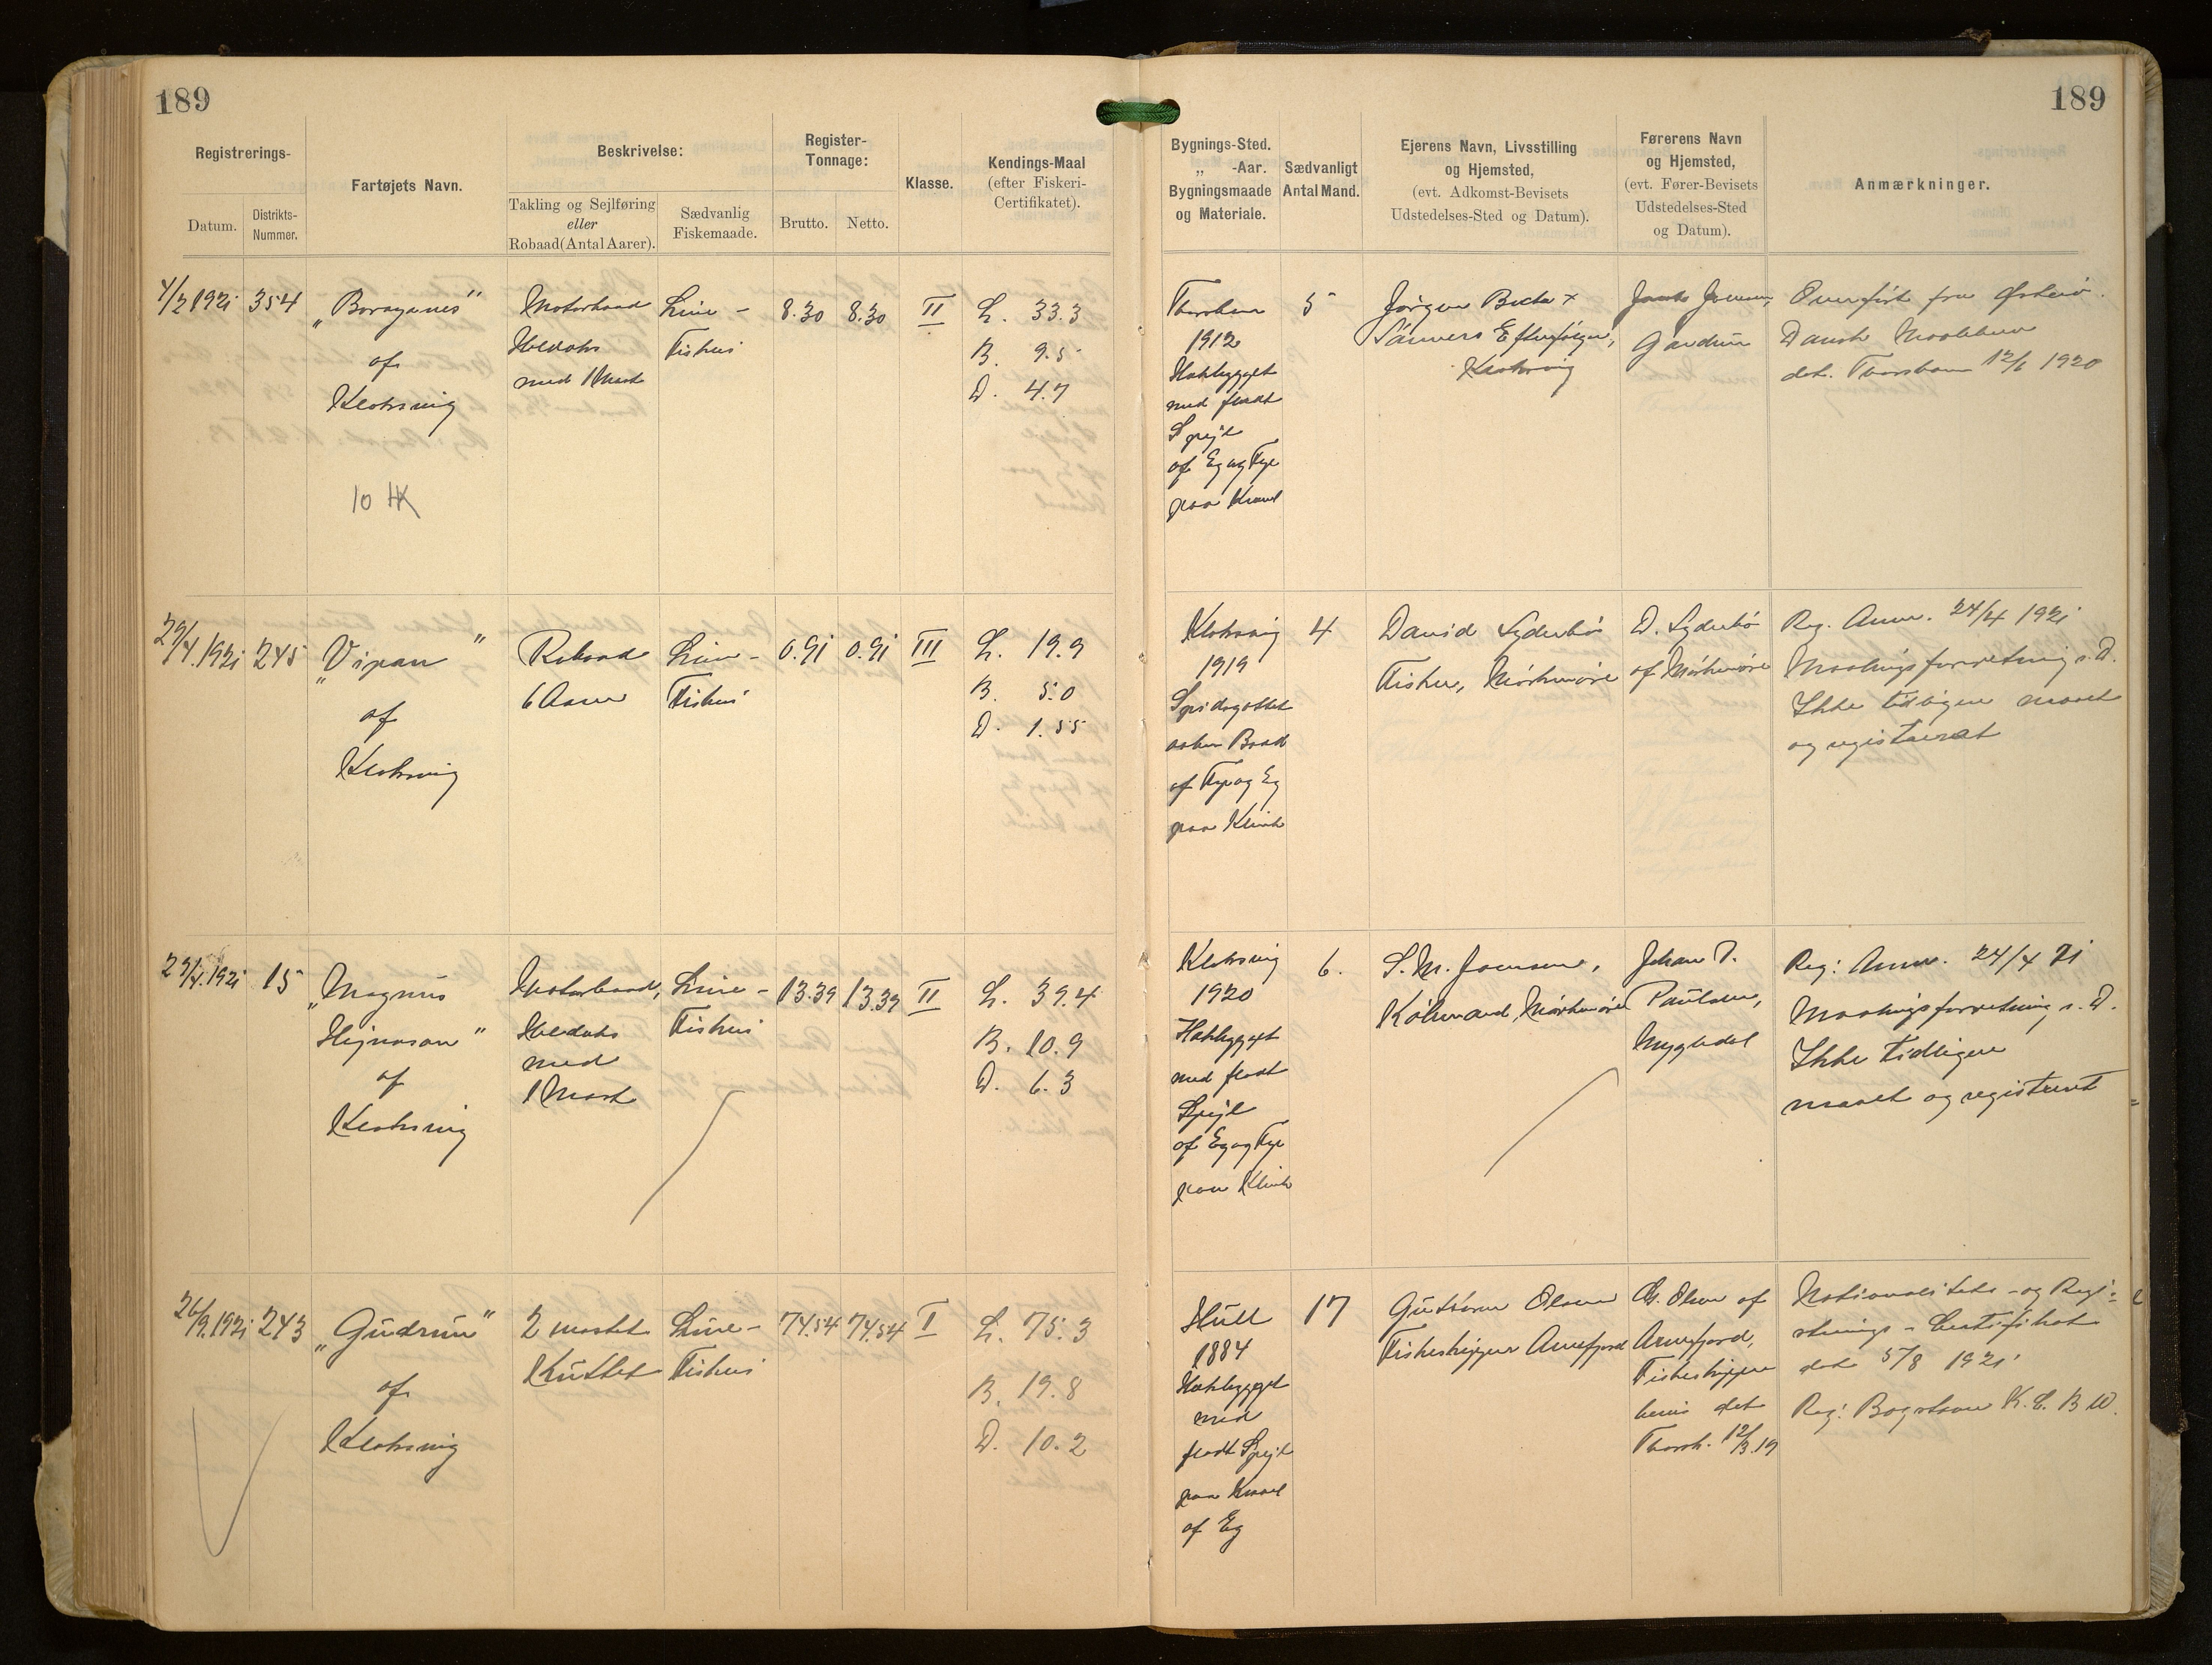 189
189
Registrerings-
Datum.
Distrikts-
Nummer.
Fartøjets Navn.
Beskrivelse:
Takling og Sejlføring
eller
Robaad (Antal Aarer).
Sædvanlig
Fiskemaade.
Register-
Tonnage:
Brutto.
Netto.
Klasse.
Kendings-Maal
(efter Fiskeri-
Certifikatet).
Bygnings-Sted.
„ -Aar.
Bygningsmaade
og Materiale.
Sædvanligt
Antal Mand.
Ejerens Navn, Livsstilling
og Hjemsted,
(evt. Adkomst-Bevisets
Udstedelses-Sted og Datum).
Førerens Navn
og Hjemsted,
(evt. Fører-Bevisets
Udstedelses-Sted
og Datum).
Anmærkninger.
354
af
Klaksvig
10 HK
Motorbaad
Heldæks
med 1 Mast
Line-
Fiskeri
8.30
8.30
II
L. 33.3
B. 9.5
D. 4.7
Thorshavn
1912
Hækbygget
med fladt
Spejl
af Eg og Fyr
paa Kravel
5
Klaksvig
Overført fra Østerø.
Dansk Maalebrev
dat. Thorshavn 12/6 1920
29/4.1921
245
„Vipan"
af
Klaksvig
Robaad
6 Aarer
Line-
Fiskeri
0.91
0.91
III
L. 19.9
B. 5.0
D. 1.55
Klaksvig
1919
Spidsgattet
aaben Baad
af Fyr og Eg
paa Klink
4
David Lyderbø
Fisker, Mørkenøre
D. Lyderbø
af Mørkenøre
Reg. Anm. 24/4 1921
Maalingsforretning s. D.
Ikke tidligere maalt
og registreret
29/4.1921
15
„Magnus
Hejnason"
af
Klaksvig
Motorbaad,
Heldæks
med
1 Mast
Line-
Fiskeri
13.39
13.39
II
L. 39.4
B. 10.9
D. 6.3
Klaksvig
1920
Hækbygget
med fladt
Spejl
af Eg og Fyr
paa Klink
6.
S. M. Joensen,
Købmand, Mørkenøre
Johan D.
Paulsen,
Mygledal
Reg: Anm. 24/4 21
Maalingsforretning s. D.
Ikke tidligere
maalt og registreret
26/9.1921
243
„Gudrun"
af
Klaksvig
2 mastet
Kutter
Line-
Fiskeri
74.54
74.54
I
L. 75.3
B. 19.8
D. 10.2
Hull
1884
Hækbygget
med
fladt Spejl
paa Kravel
af Eg
17
Guttorm Olsen
Fiskeskipper Arnefjord
G. Olsen af
Arnefjord,
Fiskeskipper
bevis dat
Thorsh. 12/3.19
Nationalitets- og Regi-
strings-Certifikat
dat 5/8 1921
Reg: Bogstaver